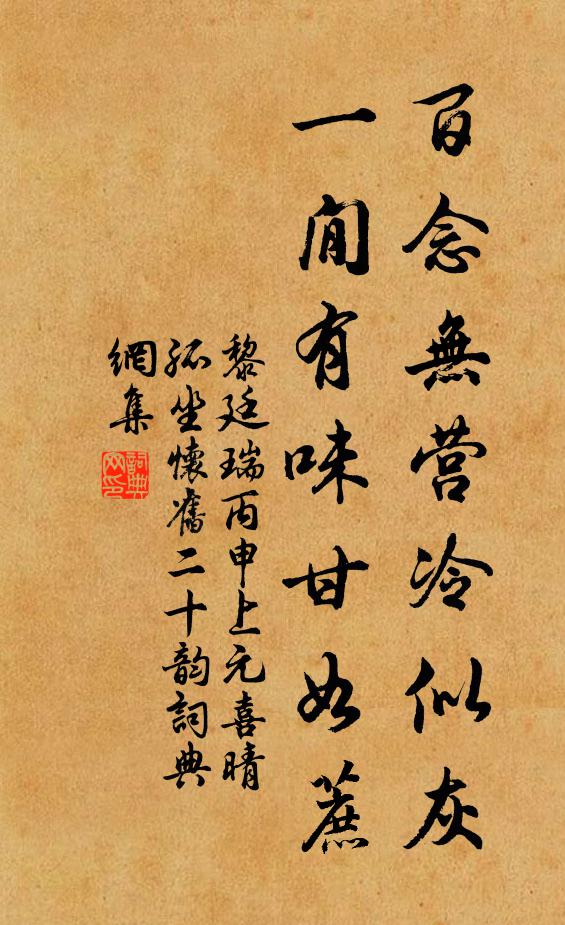 百念無营冷似灰
一閒有味甘如蔗
黎廷瑞丙申上元喜晴
孤坐懷舊二十韵詞典
網集
詞典
网印